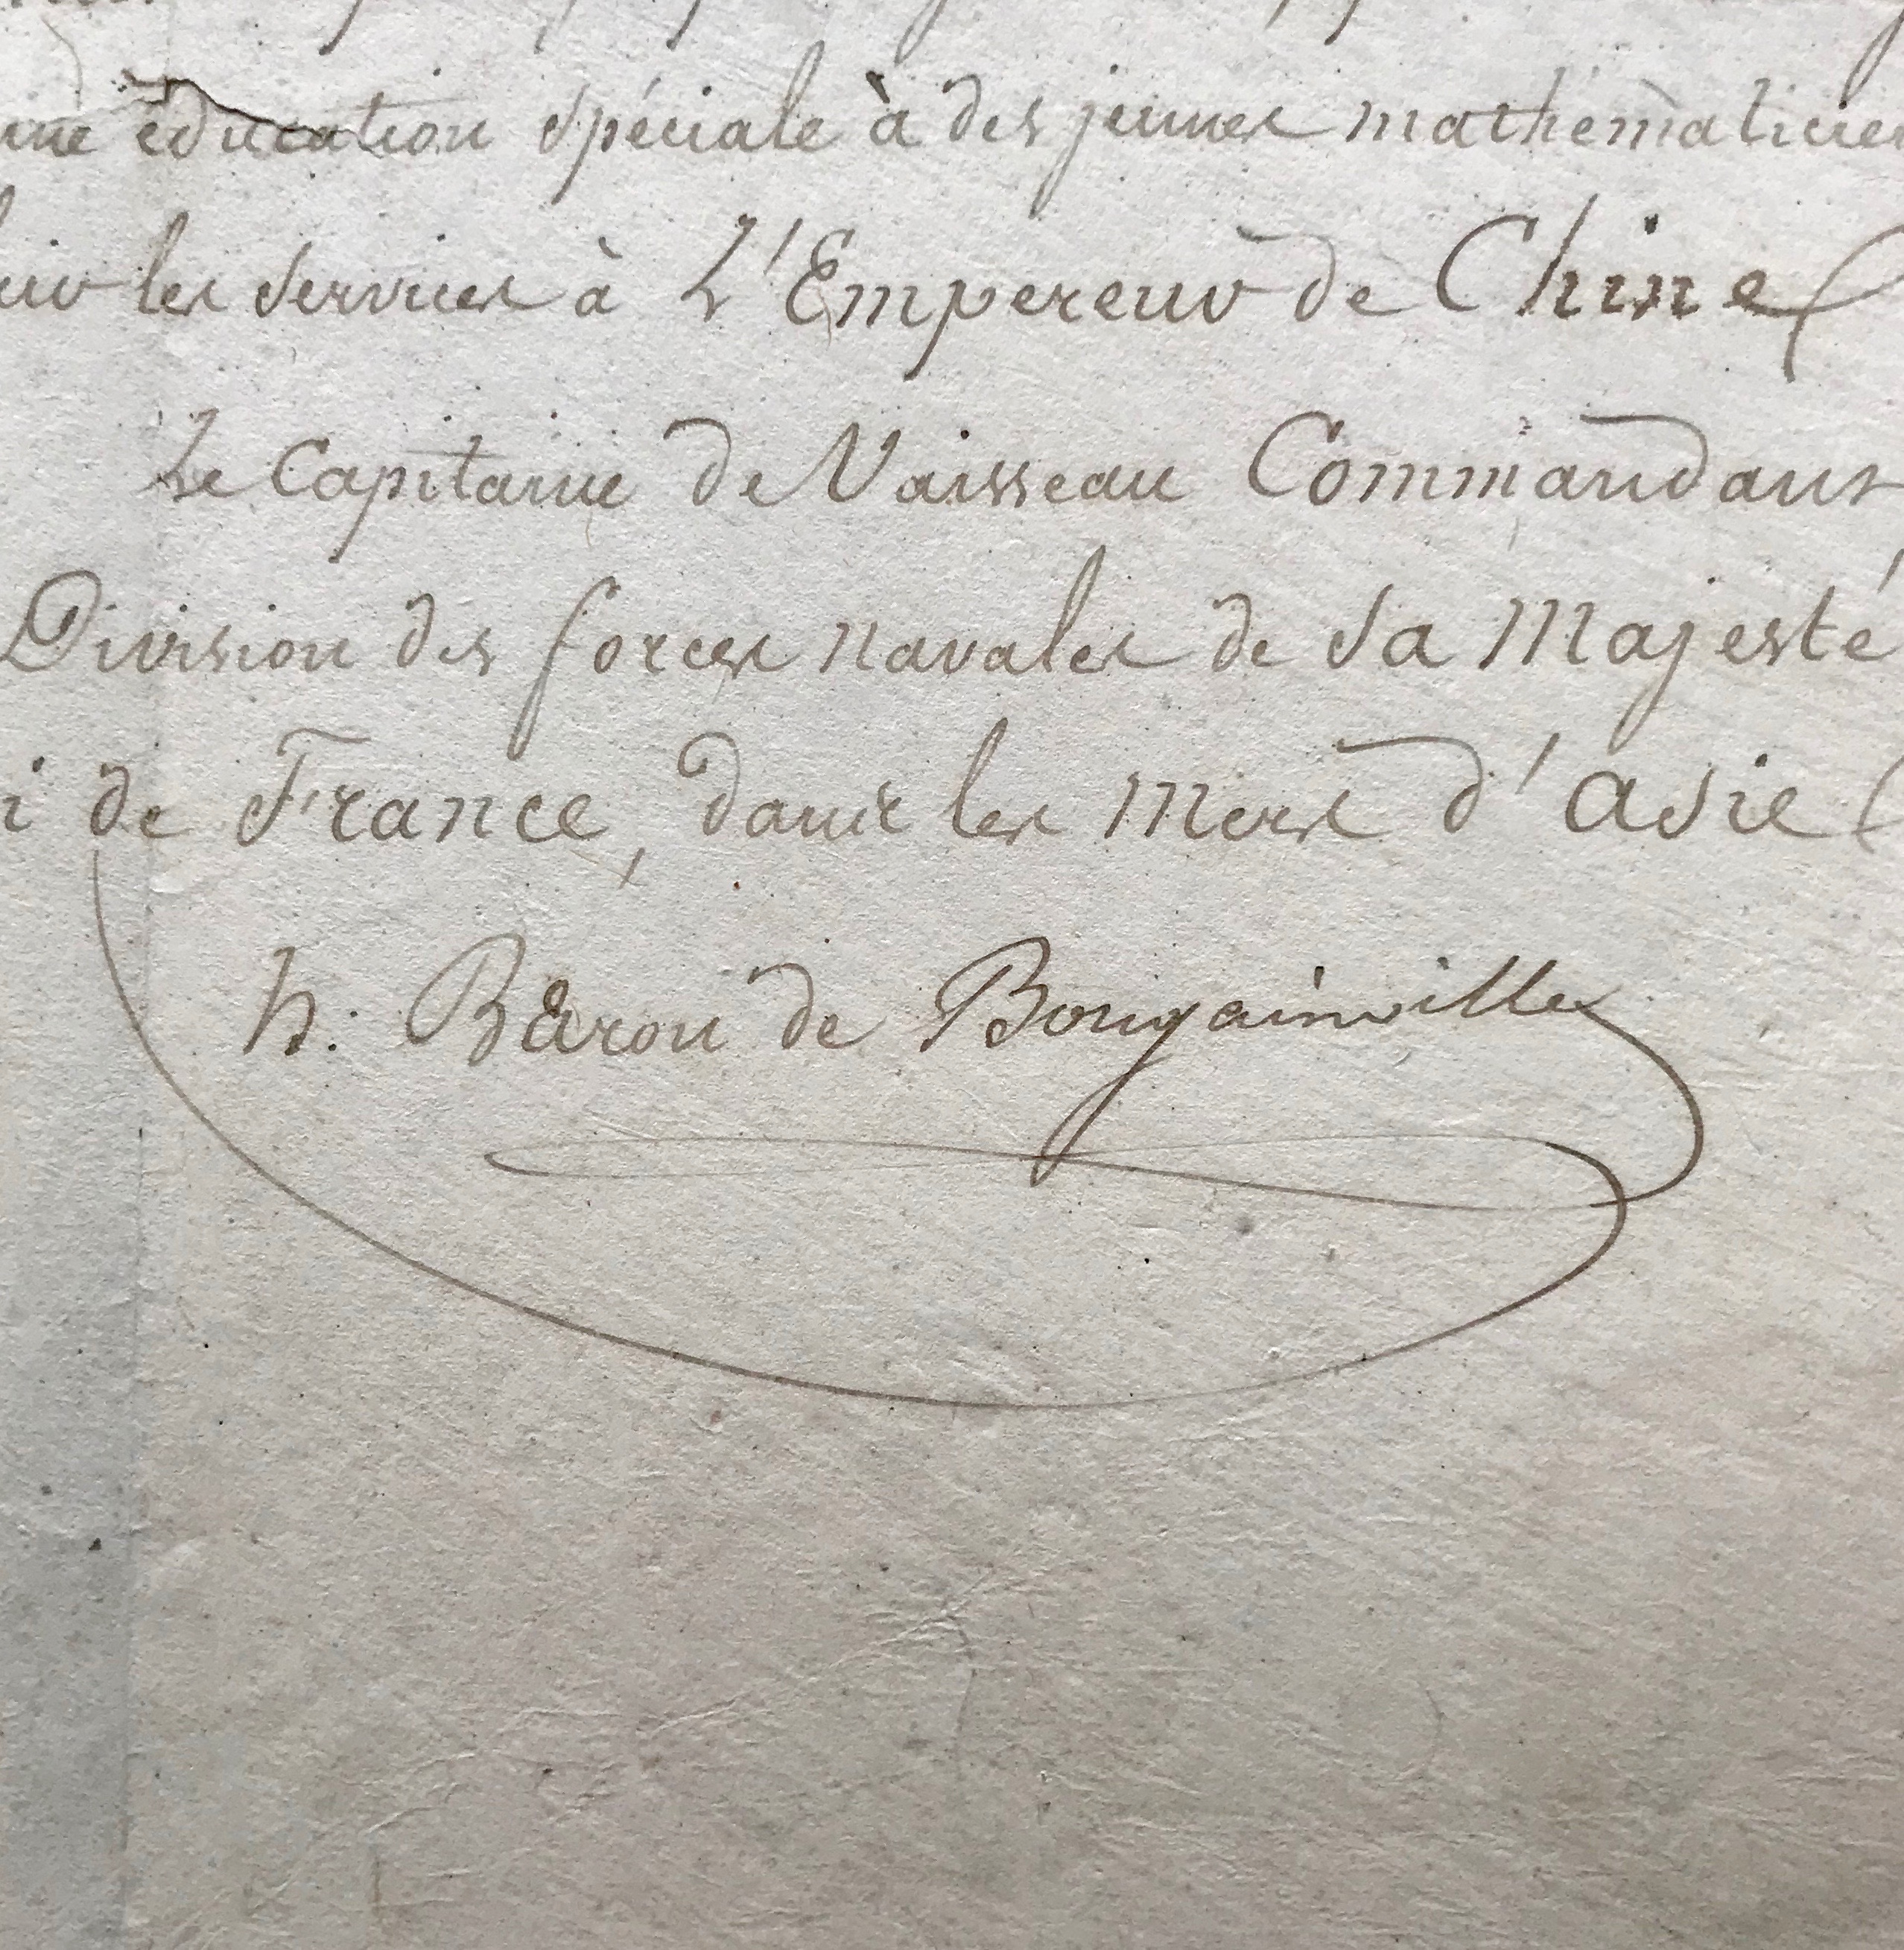 une éducation spéciale à des jeunes mathématicien
les services à L'Empereur de Chine
Le Capitaine de Vaisseau Commandant
Division des forces navales de Sa Majesté
i de France, dans les Mers d'Asie
h. Baron de Bougainville